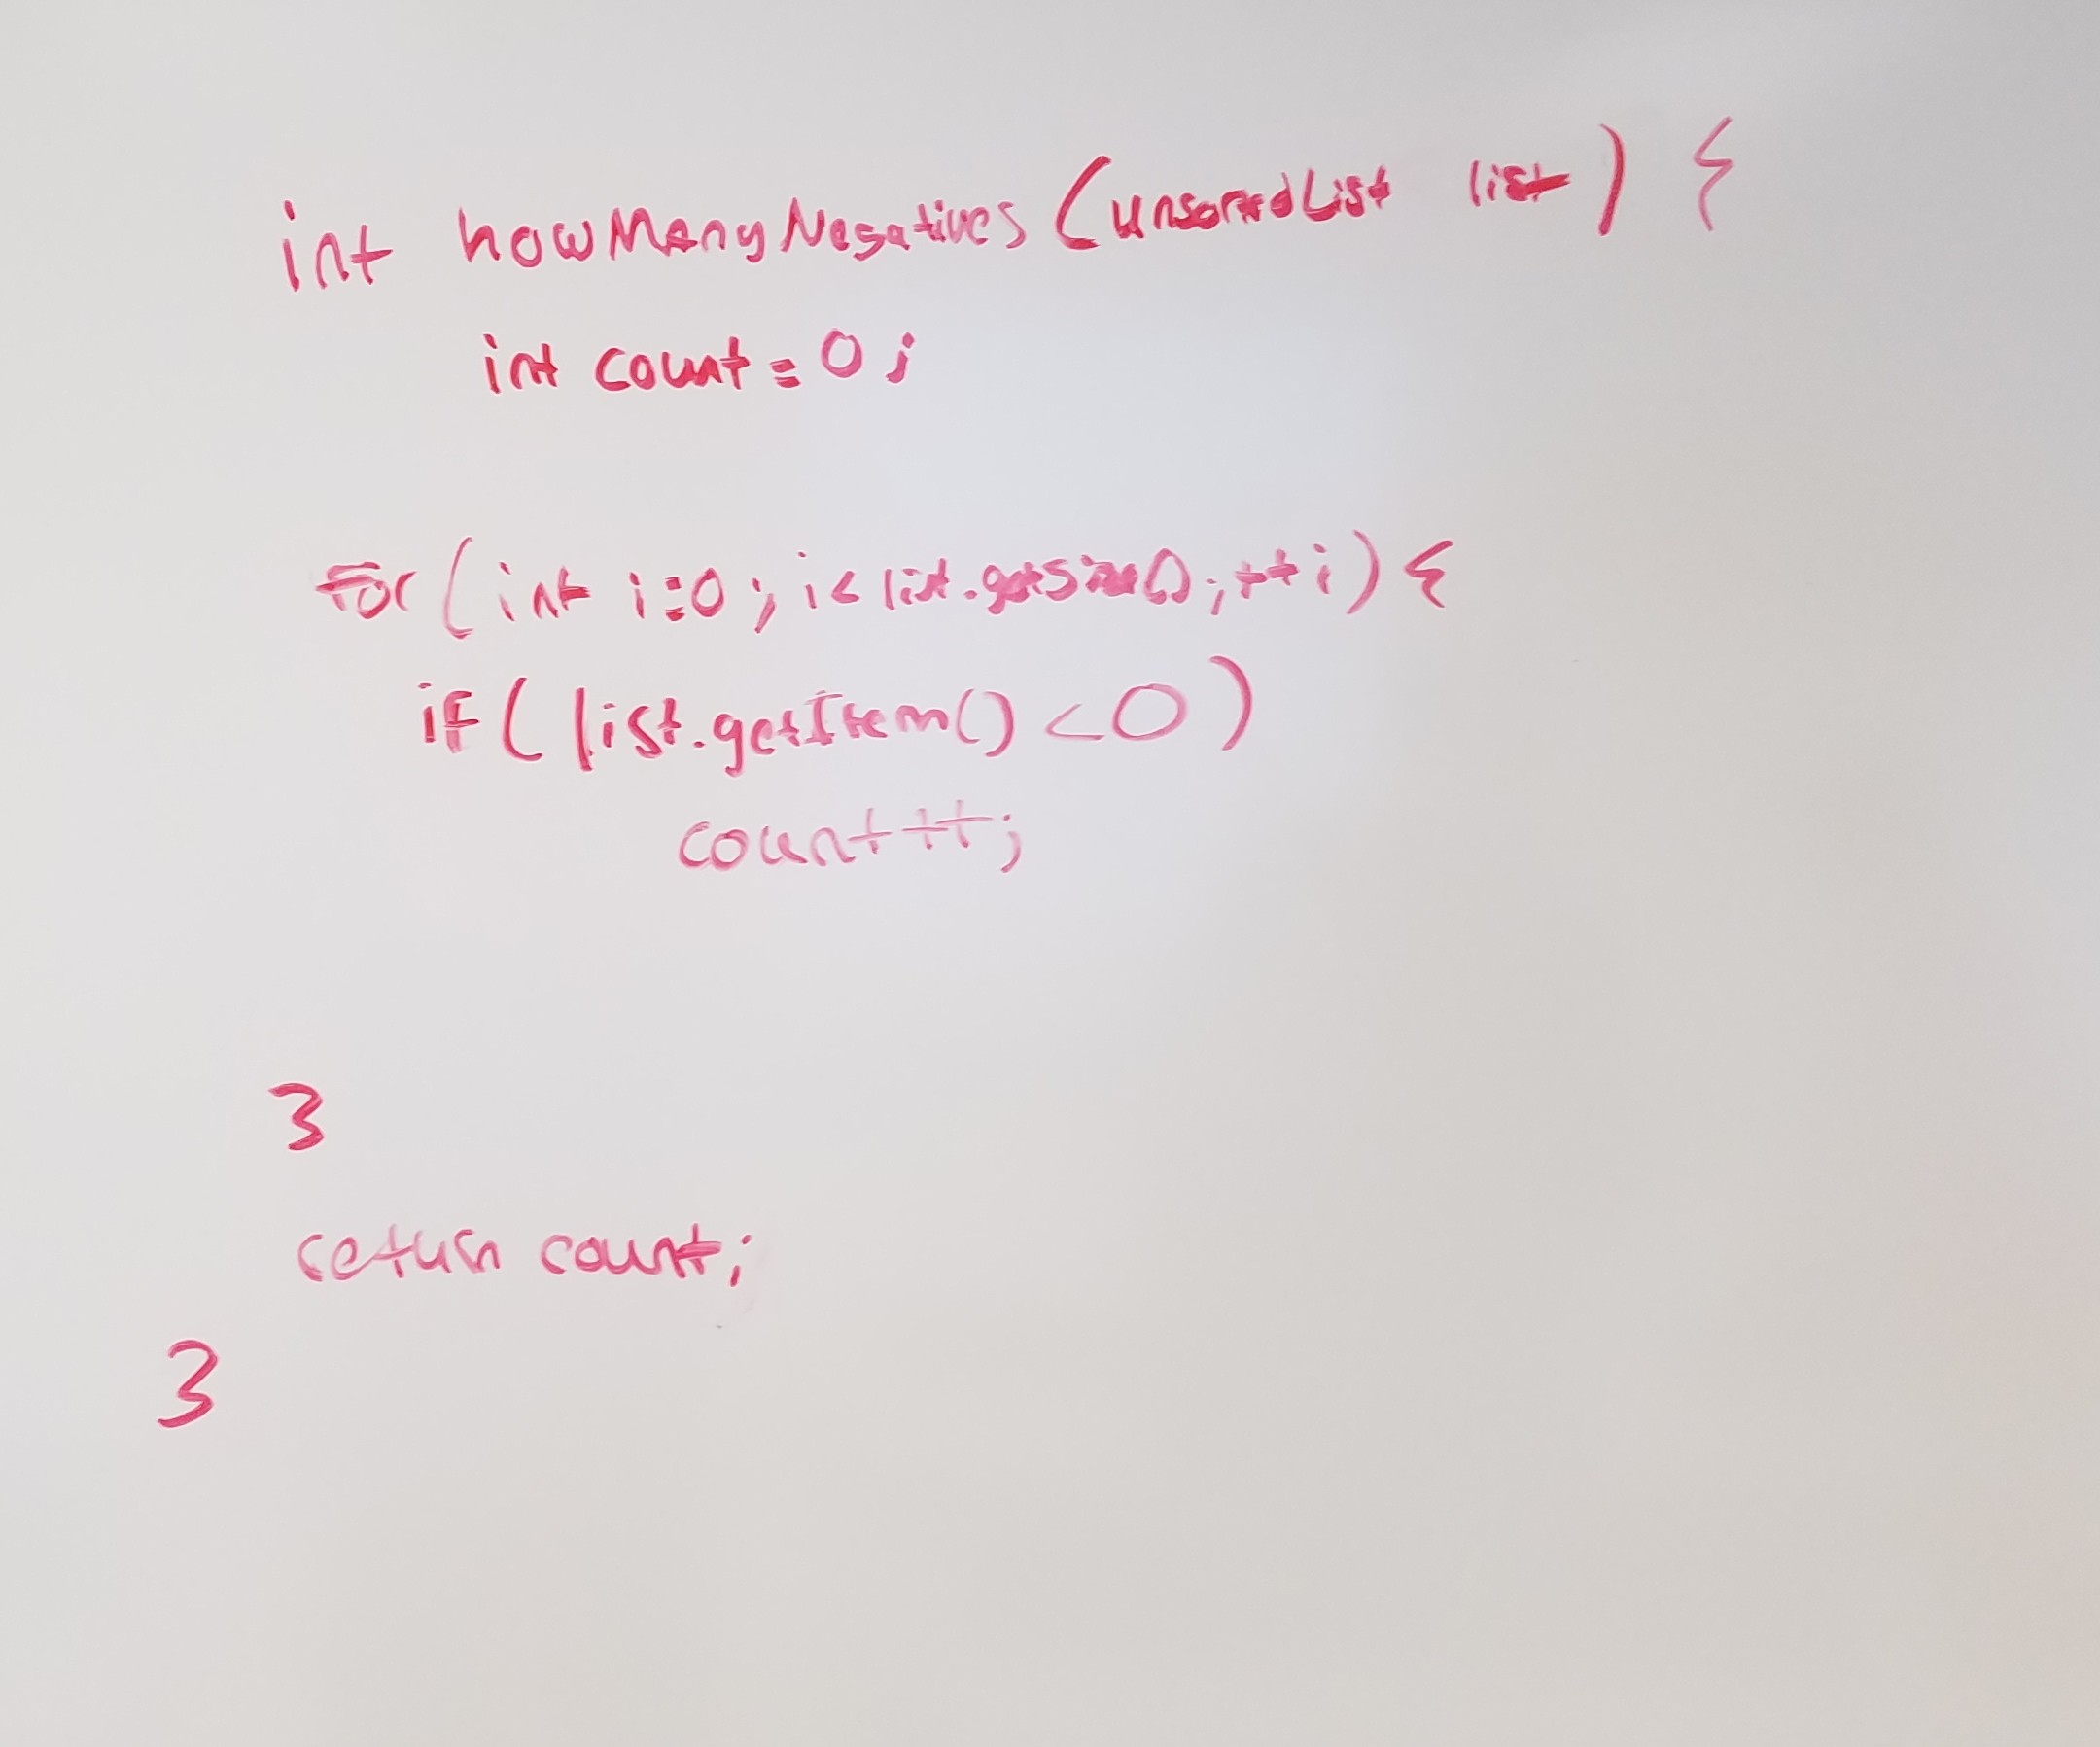 int howManyNegatives (unsortedList list) {
int count = 0;
for (int i=0; i< list.getSize(); ++i) {
if ( list.getItem() <0 )
count++;
}
return count;
}